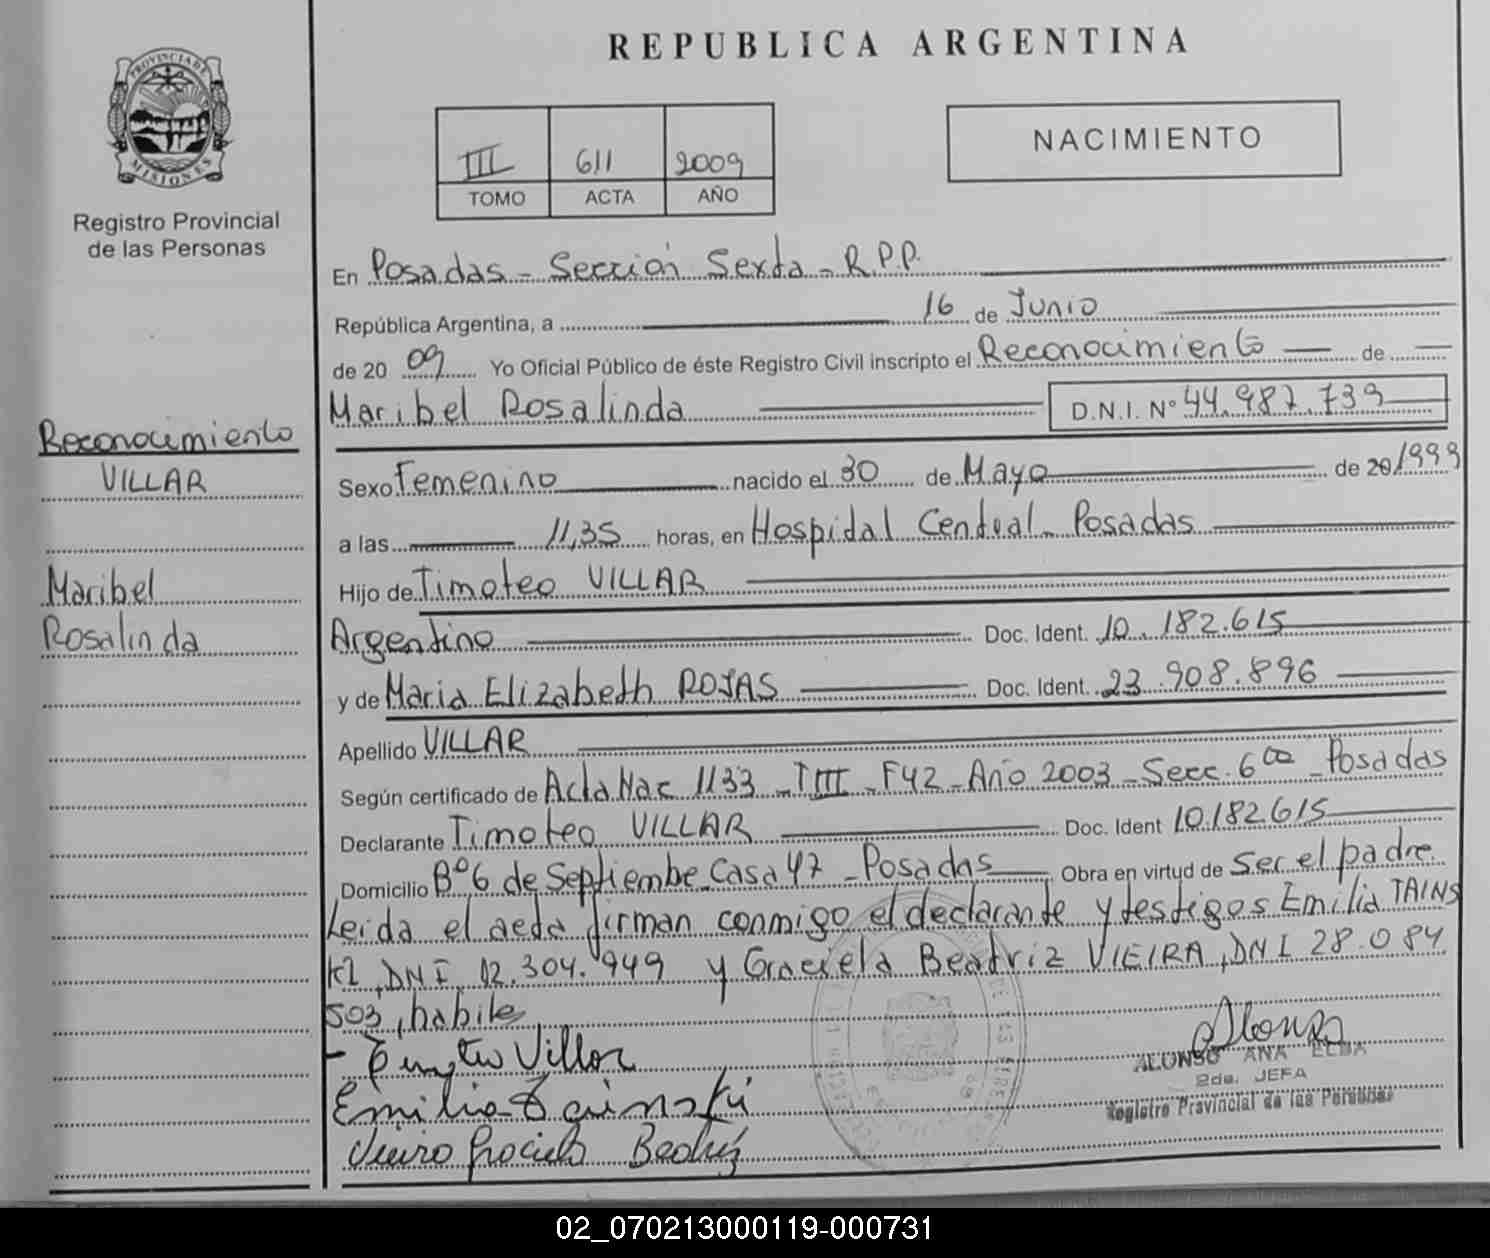 PROVINCIA DE
MISIONES
Registro Provincial
de las Personas
Reconocimiento
VILLAR
Maribel
Rosalinda
REPUBLICA ARGENTINA
III 611 2009
TOMO ACTA AÑO
NACIMIENTO
En Posadas - Sección Sexta - R.P.P.
República Argentina, a 16 de Junio
de 20 09 Yo Oficial Público de éste Registro Civil inscripto el Reconocimiento de
Maribel Rosalinda D.N.I. Nº 44.987.739
Sexo Femenino nacido el 30 de Mayo de 20/1999
a las 11,35 horas, en Hospital Central - Posadas
Hijo de Timoteo VILLAR
Argentino Doc. Ident. 10.182.615
y de Maria Elizabeth ROJAS Doc. Ident. 23.908.896
Apellido VILLAR
Según certificado de Acta Nac 1133 - T III - F 42 - Año 2003 - Secc. 6 - Posadas
Declarante Timoteo VILLAR Doc. Ident 10.182.615
Domicilio Bº 6 de Septiembe Casa 47 - Posadas Obra en virtud de Ser el padre
Leida el acta firman conmigo el declarante y testigos Emilia TAINS
KI, DNI 12.304.949 y Graciela Beatriz VIEIRA, DNI 28.084
503, habile
Villar
Emilia Tainski
Vieira Graciela Beatriz
Alonso
ALONSO ANA ELBA
2da. JEFA
Registro Provincial de las Personas
02_070213000119-000731